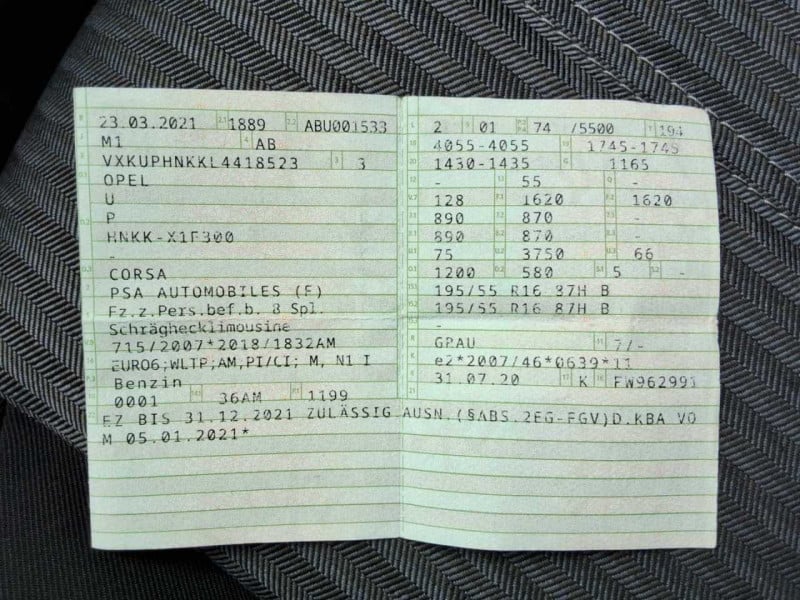 23.03.2021 1889 ABU001533
M1 AB
VXKUPHNKKL4418523 3
OPEL
U
P
HNKK-X1F300
-
CORSA
PSA AUTOMOBILES (F)
Fz.z.Pers.bef.b. 8 Spl.
Schräghecklimousine
715/2007*2018/1832AM
EURO6;WLTP;AM,PI/CI; M, N1 I
Benzin
0001 36AM 1199
EZ BIS 31.12.2021 ZULÄSSIG AUSN.(§ABS.2EG-FGV)D.KBA VO
M 05.01.2021*
2 01 74 /5500 194
4055-4055 1745-1745
1430-1435 1165
- 55 -
128 1620 1620
890 870 -
890 870 -
75 3750 66
1200 580 5 -
195/55 R16 87H B
195/55 R16 87H B
-
GRAU 7/-
e2*2007/46*0639*11
31.07.20 K FW962991